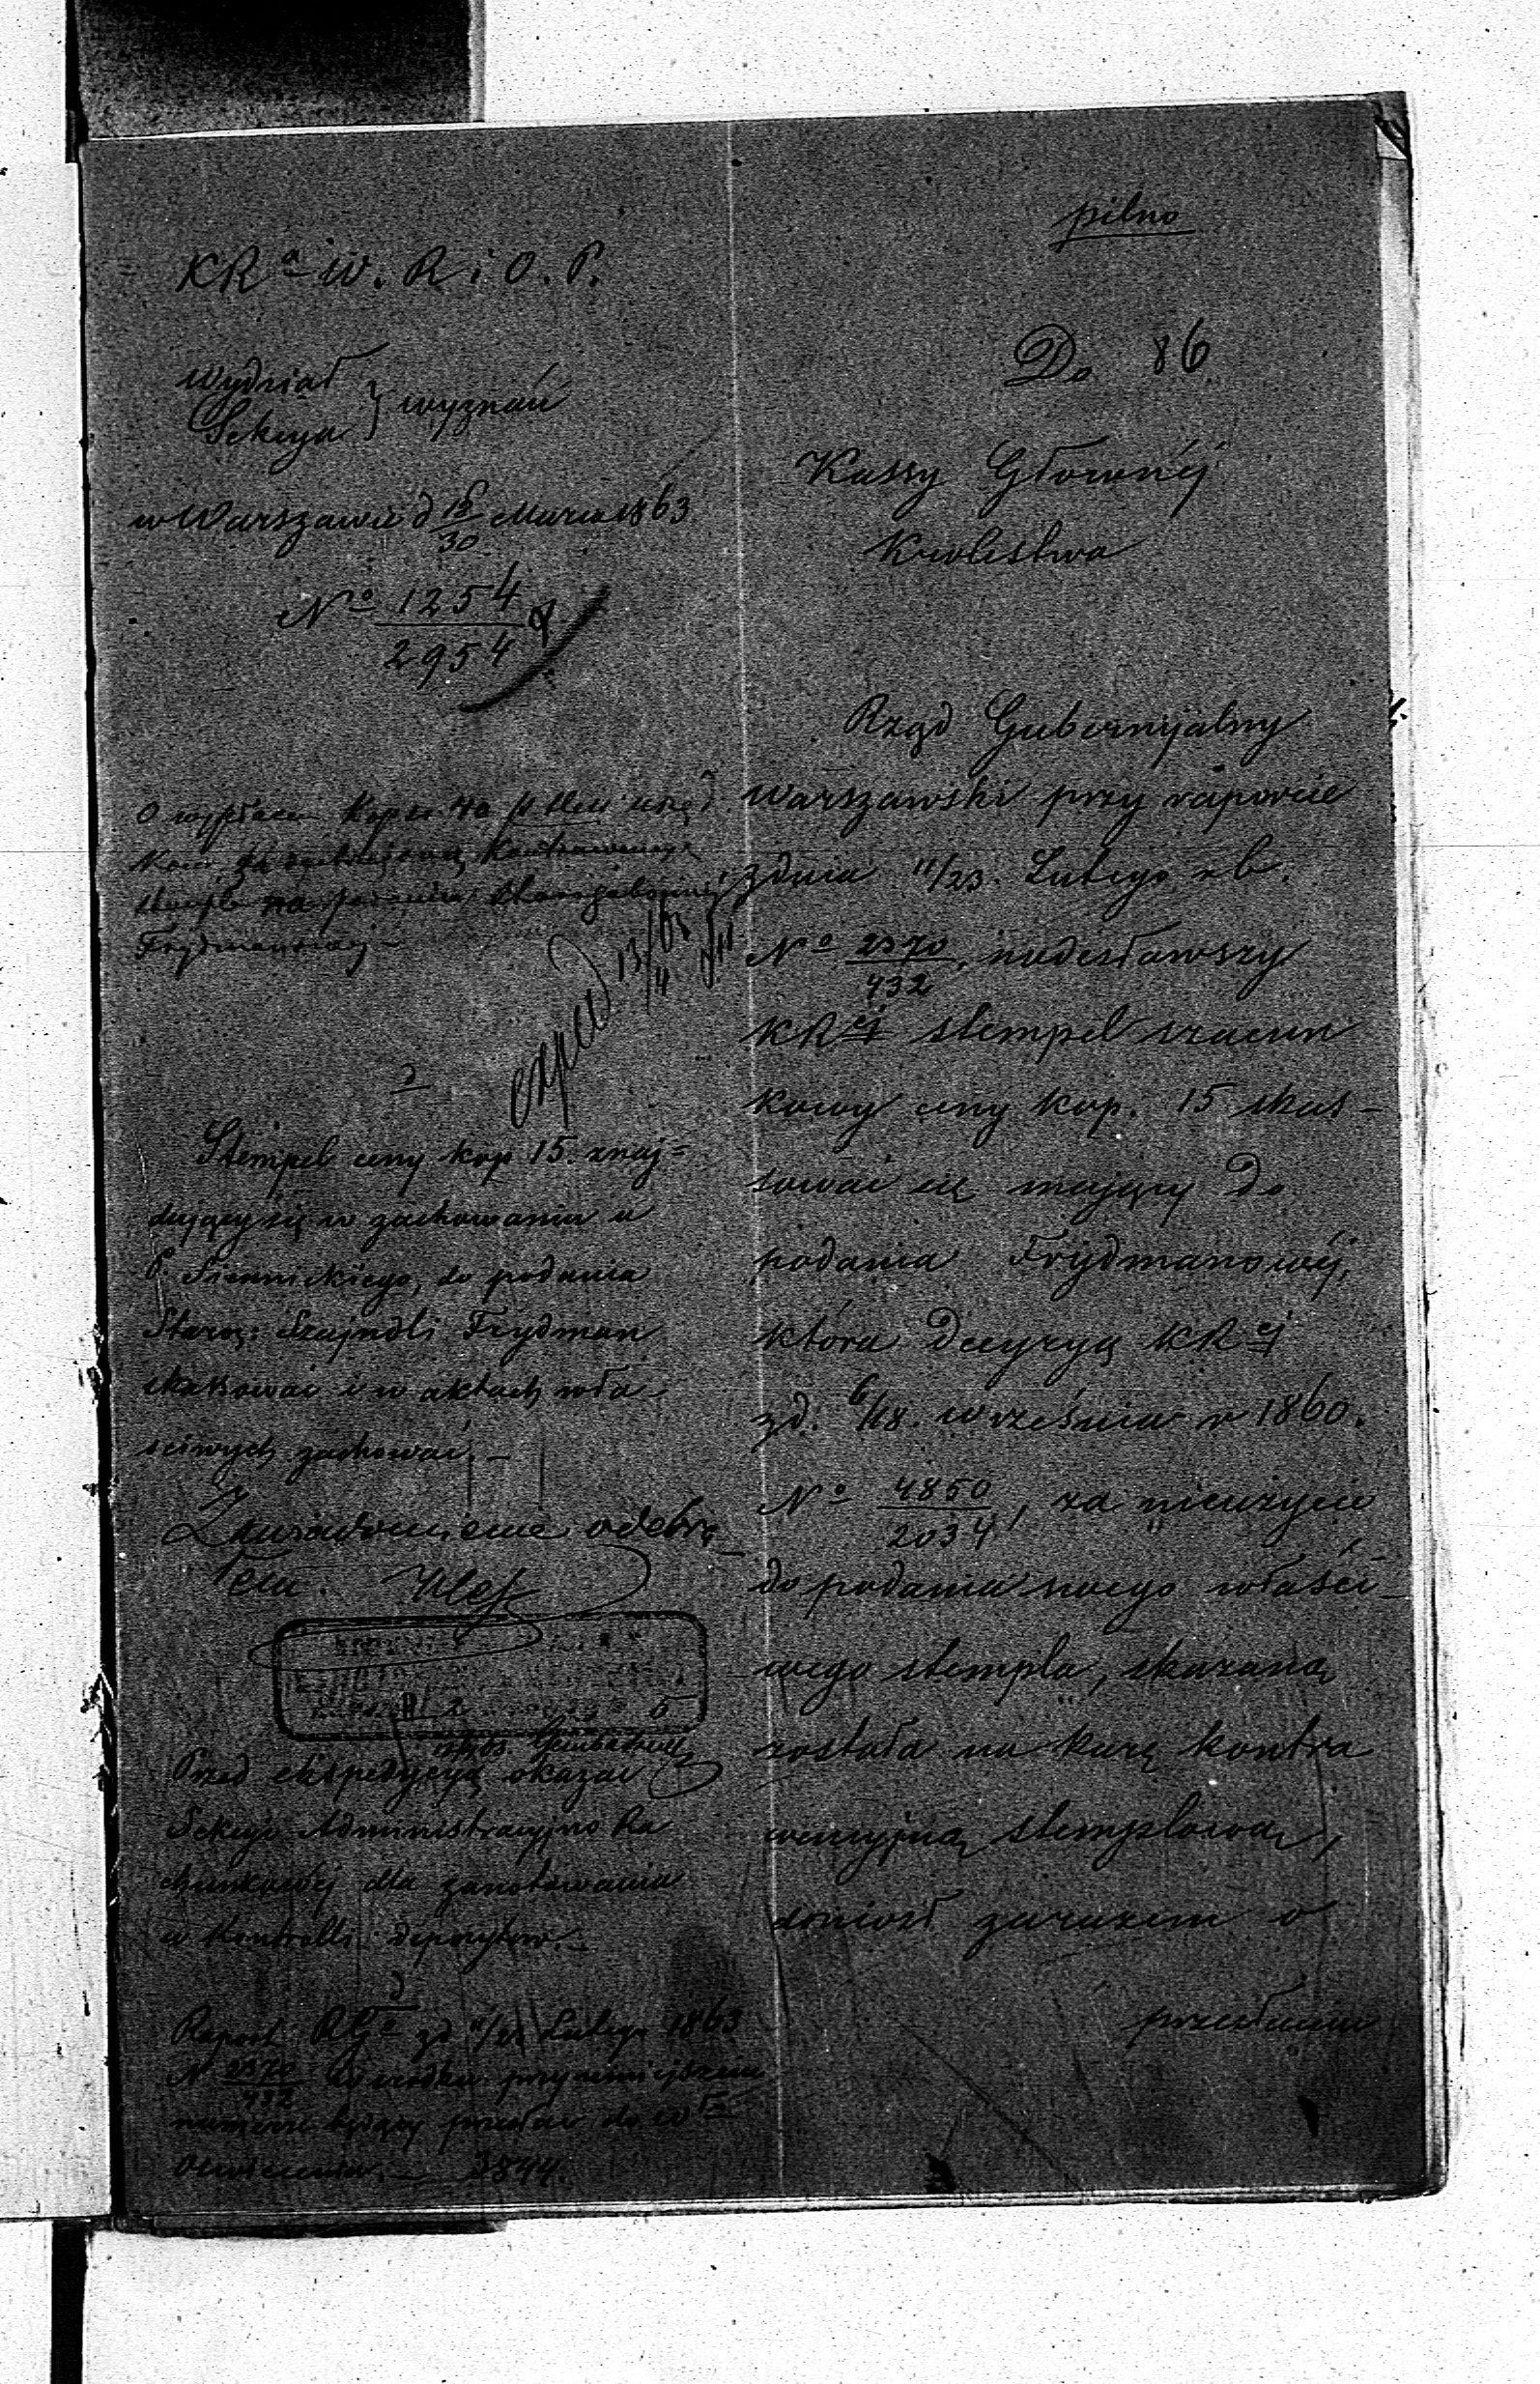 KRa W. R i O. P.
Wydział
Sekcya } wyznań
w Warszawie d 18/30 Marca 1863
No 1254/2954
O wypłacie Kop sr. 40
stempla na podaniu Starozakonnej
Frydmanowej –
exped 13/4 63
Stempel ceny kop 15. znaj=
dujący się w zachowaniu u
P. Siennickiego, do podania
Staroz: Szajndli Frydman
skasować i w aktach wła
ściwych zachować. –
Zawiadomienie odebra
łem.
Przed ekspedycyą okazać
Sekcyi Administracyjno Ra
chunkowej dla zanotowania
w kontrolli depozytow. –
Raport RGo zd 11/23 Lutego 1863
N 2370/432 w środku przy niniejszem
numerze będący przesłać do Wła
Oświecenia. – 3844.
pilno
Do 86
Kassy Głownéj
Krolestwa
Rząd Gubernijalny
Warszawski przy raporcie
z dnia 11/23. Lutego r b.
No 2370/432, nadesławszy
KRej stempel szacun
kowy ceny kop. 15 skas–
sować się mający do
podania Frydmanowéj,
która Decyzyą KRej
z d. 6/18. września r 1860.
No 4850/2034, za nieużycie
do podania swego właści–
wego stempla, skazaną
została na karę kontra
wencyjną stemplową,
doniosł zarazem o
przesłaniu